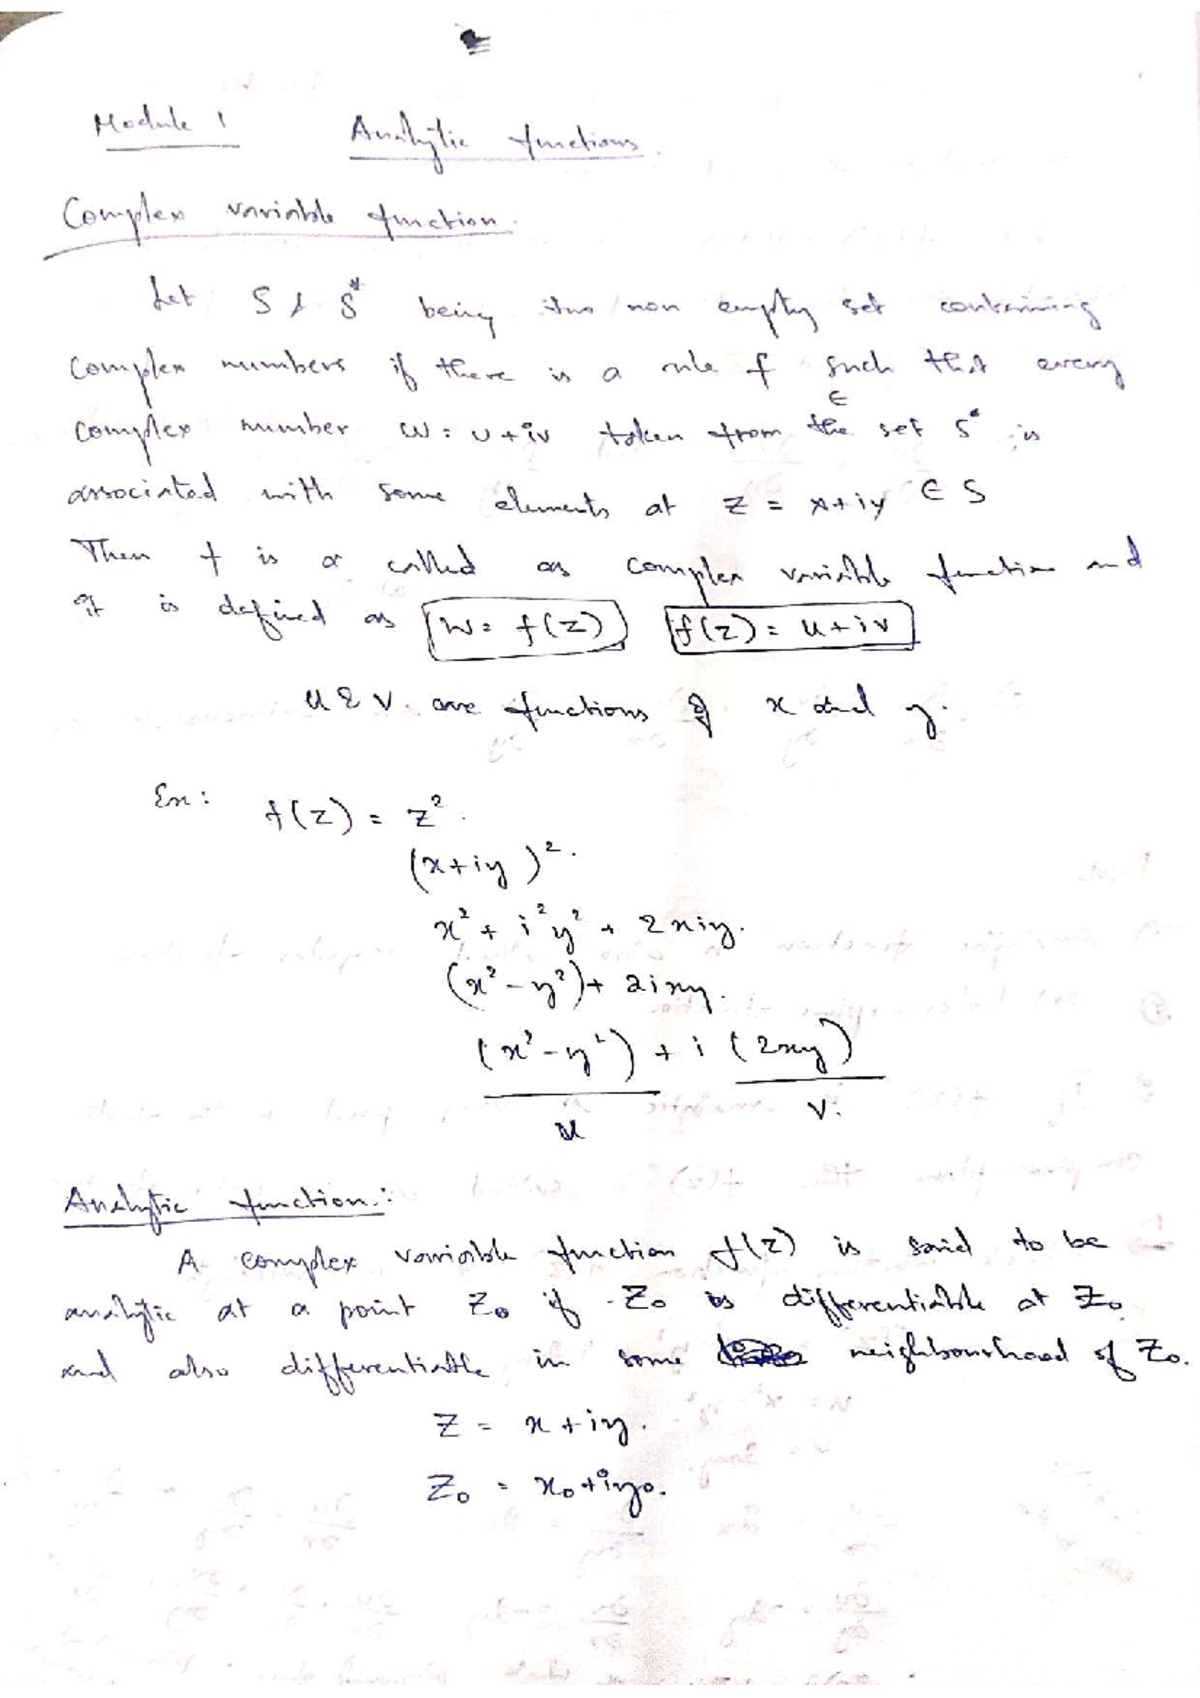 Module 1 Analytic functions.
Complex variable function.
Let S & S* being two non empty set containing
complex numbers if there is a rule f such that every
∈
complex number w = u+iv taken from the set S* is
associated with some elements at z = x+iy ∈ S
Then f is a called as complex variable function and
it is defined as w = f(z) f(z) = u+iv
u & v. are functions of x and y.
Ex: f(z) = z².
(x+iy)².
x² + i²y² + 2xiy.
(x²-y²)+ 2ixy.
(x²-y²) + i (2xy)
u v.
Analytic function:
A complex variable function f(z) is said to be
analytic at a point Z₀ if Z₀ is differentiable at Z₀
and also differentiable in some neighbourhood of Z₀.
Z = x+iy.
Z₀ = x₀+iy₀.